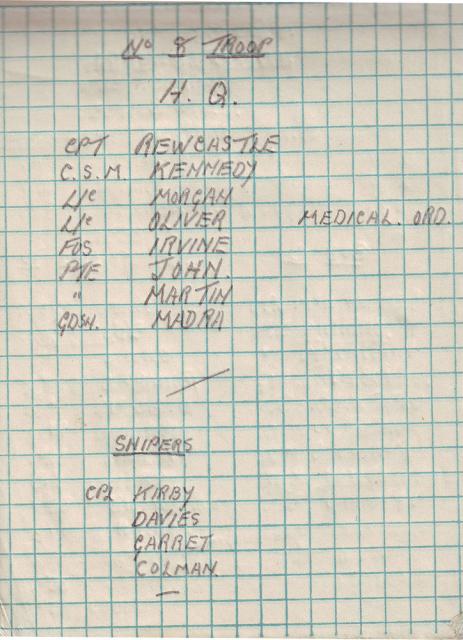 No 8 TROOP
H. Q.
CPT REWCASTLE
C.S.M. KENNEDY
L/C MORGAN
L/C OLIVER MEDICAL. ORD.
FUS IRVINE
PTE JOHN.
" MARTIN
GDSN. MADRA
SNIPERS
CPL KIRBY
DAVIES
GARRET
COLMAN